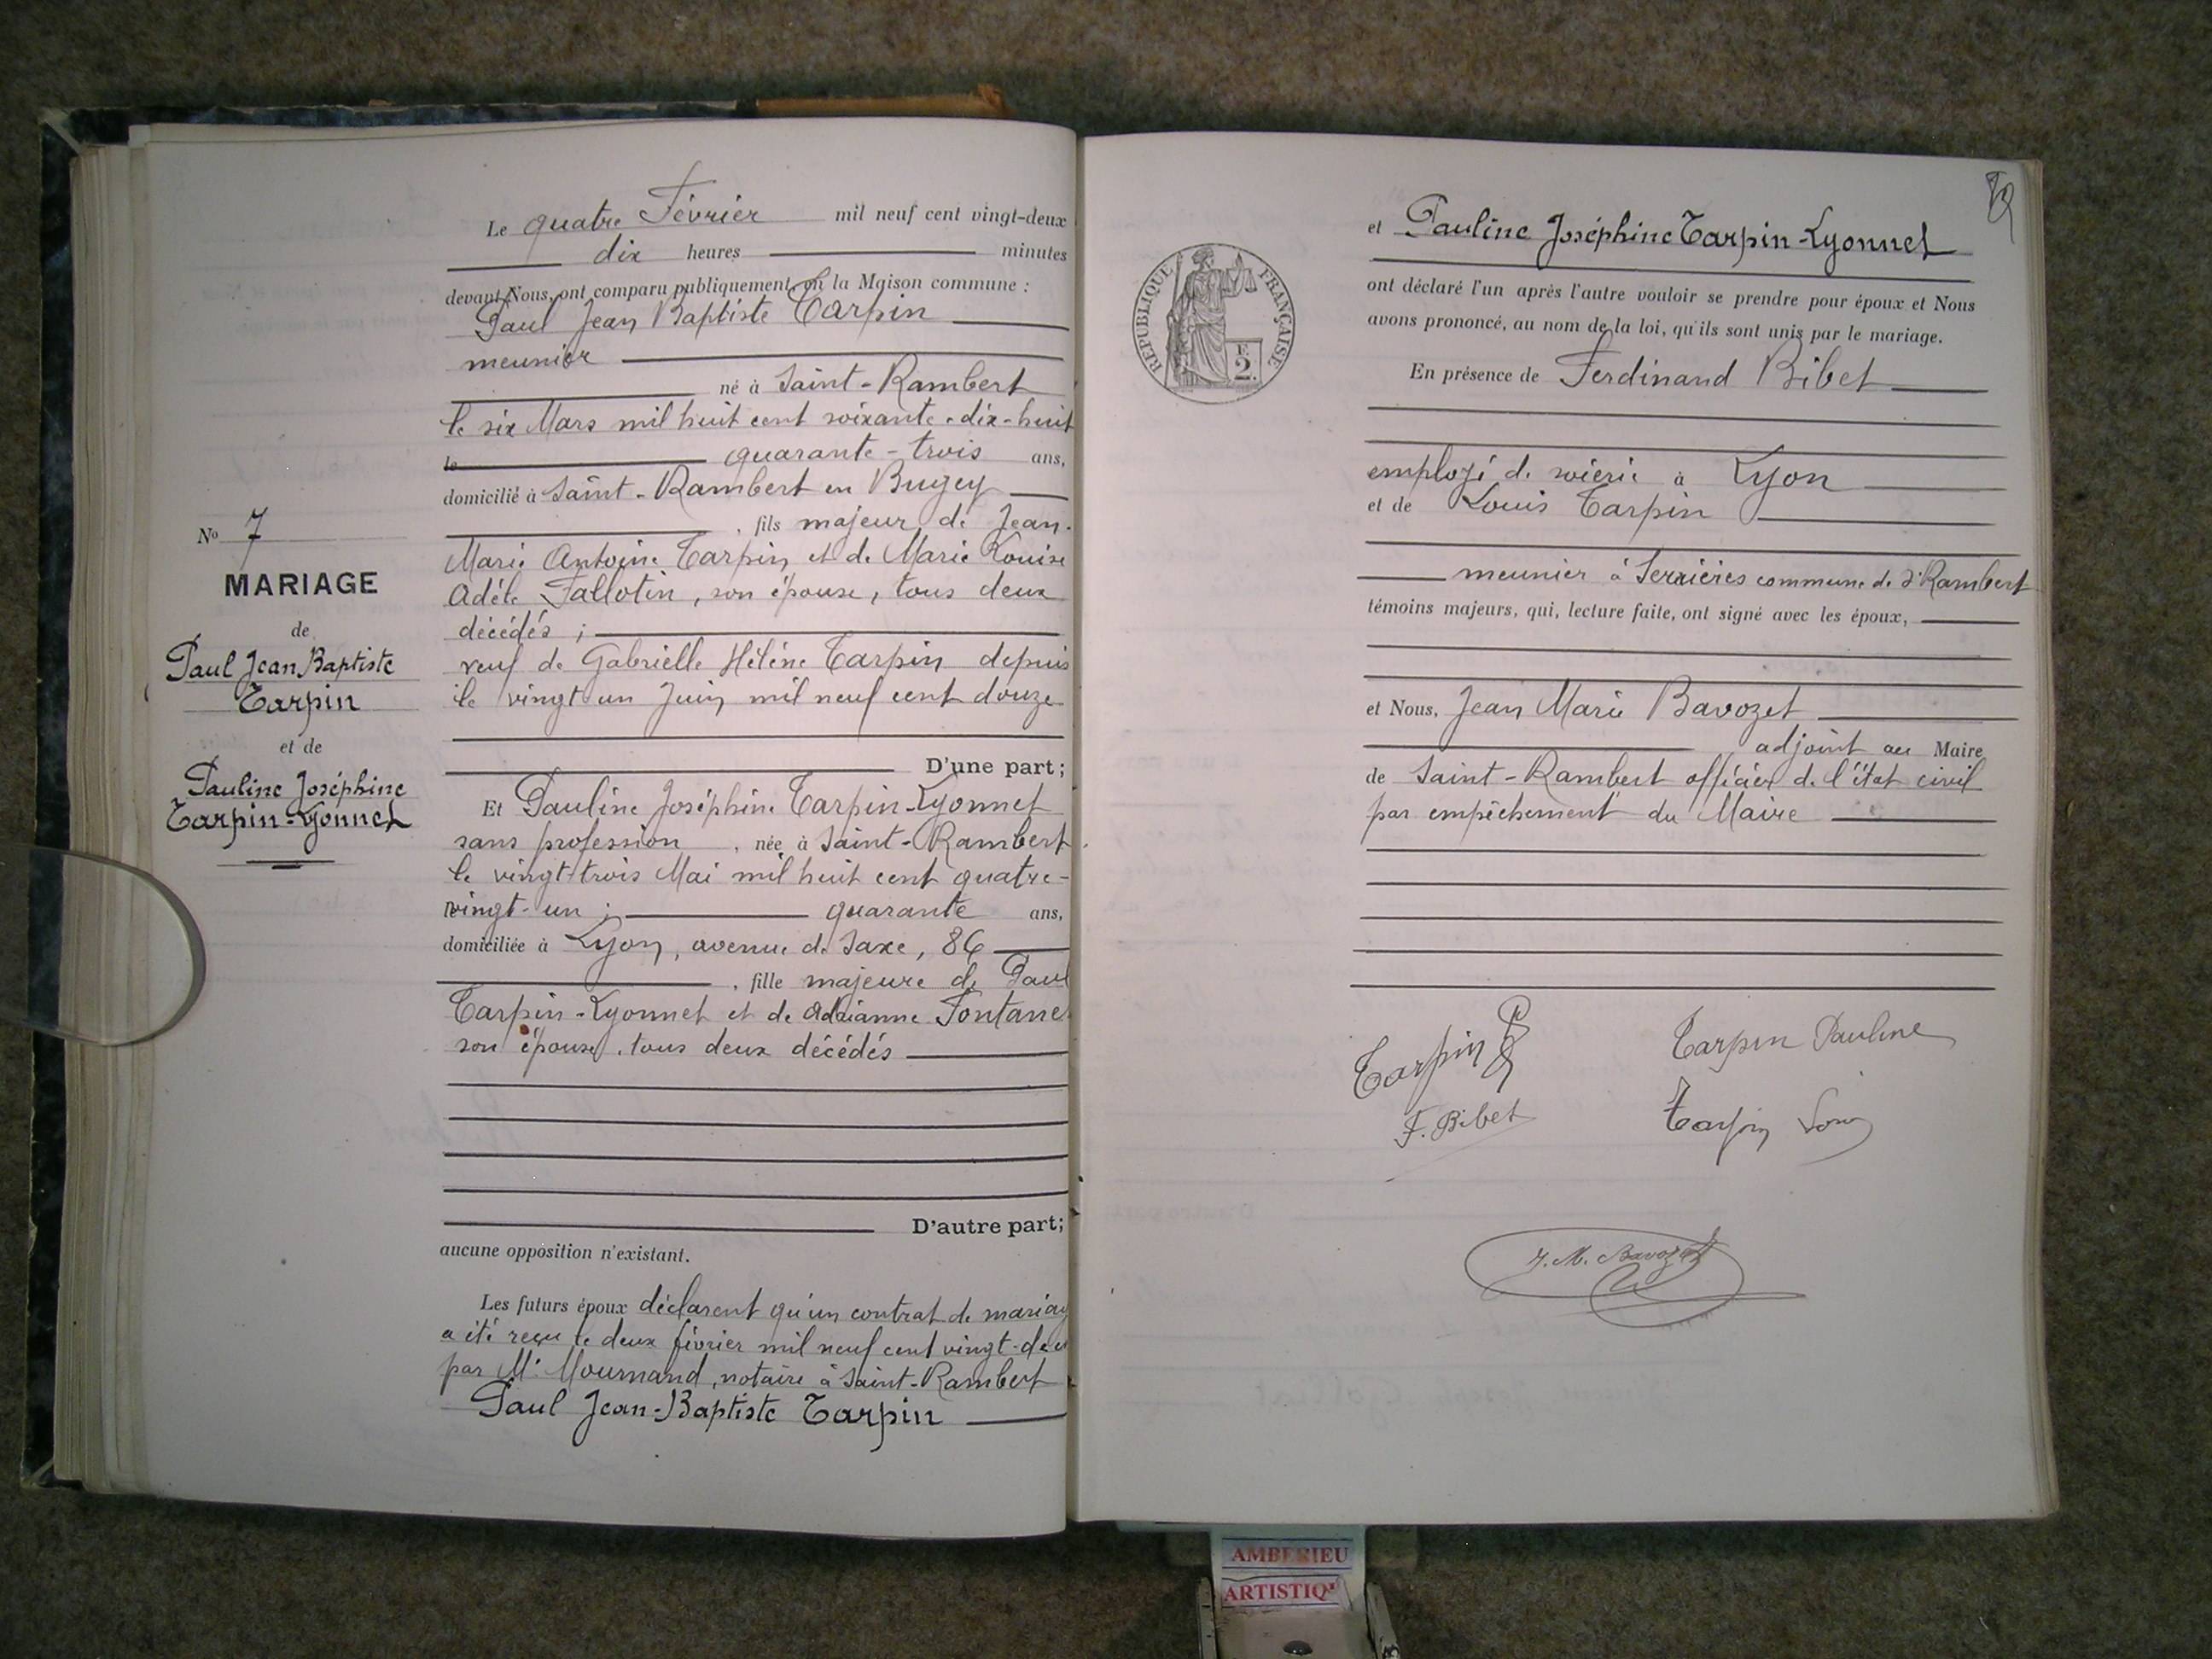 Le quatre Février mil neuf cent vingt-deux
dix heures minutes
devant Nous, ont comparu publiquement en la Maison commune :
Paul Jean Baptiste Tarpin
meunier
né à Saint-Rambert
le six Mars mil huit cent soixante-dix-huit
le quarante-trois ans,
domicilié à Saint-Rambert en Bugey
, fils majeur de Jean-
Marie Antoine Tarpin et de Marie Louise
Adèle Fallotin, son épouse, tous deux
décédés ;
veuf de Gabrielle Hélène Tarpin depuis
le vingt un Juin mil neuf cent douze
D'une part;
Et Pauline Joséphine Tarpin-Lyonnet
sans profession , née à Saint-Rambert
le vingt trois Mai mil huit cent quatre-
vingt-un ; quarante ans,
domiciliée à Lyon, avenue de Saxe, 86
, fille majeure de Paul
Tarpin-Lyonnet et de Adrianne Fontane
son épouse, tous deux décédés
D'autre part;
aucune opposition n'existant.
Les futurs époux déclarent qu'un contrat de mariag
a été reçu le deux février mil neuf cent vingt-deu
par Me Mournand, notaire à Saint-Rambert
Paul Jean-Baptiste Tarpin
No 7
MARIAGE
de
Paul Jean Baptiste
Tarpin
et de
Pauline Joséphine
Tarpin-Lyonnet
et Pauline Joséphine Tarpin-Lyonnet
ont déclaré l'un après l'autre vouloir se prendre pour époux et Nous
avons prononcé, au nom de la loi, qu'ils sont unis par le mariage.
En présence de Ferdinand Bibet
employé de soierie à Lyon
et de Louis Tarpin
meunier à Serrières commune de St Rambert
témoins majeurs, qui, lecture faite, ont signé avec les époux,
et Nous, Jean Marie Bavozet
adjoint au Maire
de Saint-Rambert officier de l'état civil
par empêchement du Maire
RÉPUBLIQUE FRANÇAISE
F.
2.
Tarpin P
Tarpin Pauline
F. Bibet
Tarpin Louis
J. M. Bavozet
AMBERIEU
ARTISTIQ